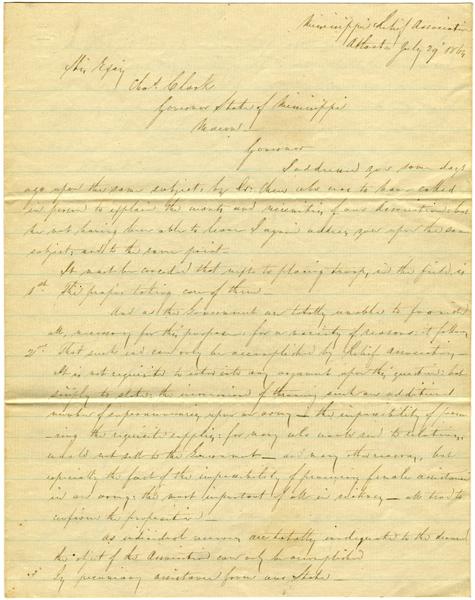 Mississippi Relief Association
Atlanta July 29th 1864
His Excy
Chas. Clark
Governor State of Mississippi
Macon
Governor
I addressed you some days
ago upon the same subject by Dr. who was to have called
in person to explain the wants and necessities of our Association; but
he not having been able to leave I again address you upon the same
subject and to the same point —
It must be conceded that next to placing troops in the field, is
1st the proper taking care of them —
And as the Government are totally unable to provide
all, necessary for this purpose: for a variety of reasons: it follows
2nd That such aid can only be accomplished by Relief Associations —
It is not requisite to enter into any argument upon this question: but
simply to state: the inconvenience of throwing such an additional
number of supernumeraries upon an army — the impossibility of
ing the requisite supplies: for many who would send to relations,
would not sell to the Government — and many other reasons, but
especially the fact of the impossibility of procuring female assistance
in an army: the most important of all in sickness — all tend to
confirm the proposition —
As individual means are totally inadequate to the demand
the object of the Association can only be accomplished
By pecuniary assistance from our State —